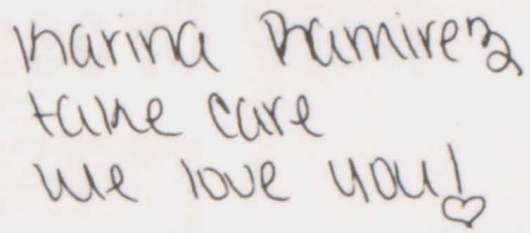 Karina Ramirez
take care
we love you! ♡